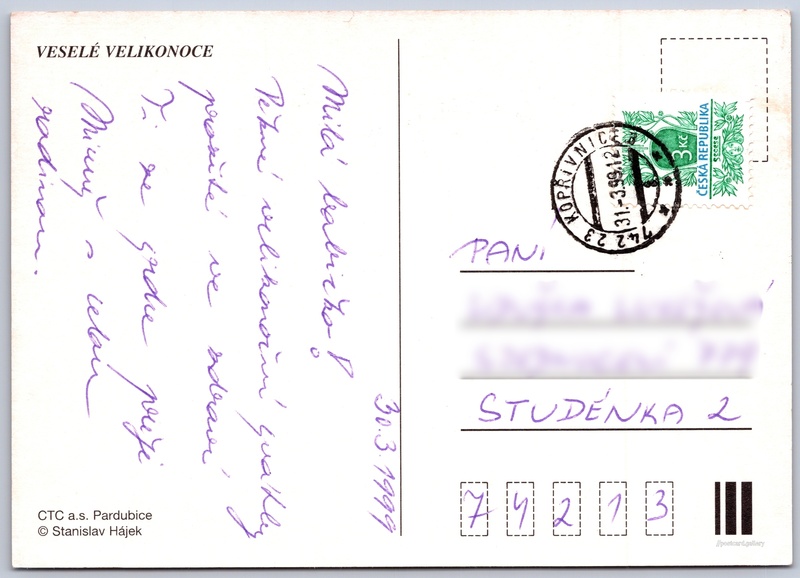 VESELÉ VELIKONOCE
30.3.1999
Milá babičko!
Pěkné velikonoční svátky
prožité ve zdraví
Ti ze srdce přeje
s celou
rodinou.
CTC a.s. Pardubice
© Stanislav Hájek
ČESKÁ REPUBLIKA
3 Kč
KOPŘIVNICE
31.-3.99.12
742 23
PANÍ
STUDÉNKA 2
74213